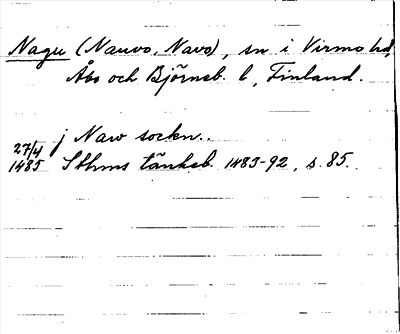 Nagu (Nauvo, Navo), sn i Virmo hd,
Åbo och Björneb. l, Finland.
j Naw sockn..
27/4 1485 Sthms tänkeb. 1483-92, s. 85.